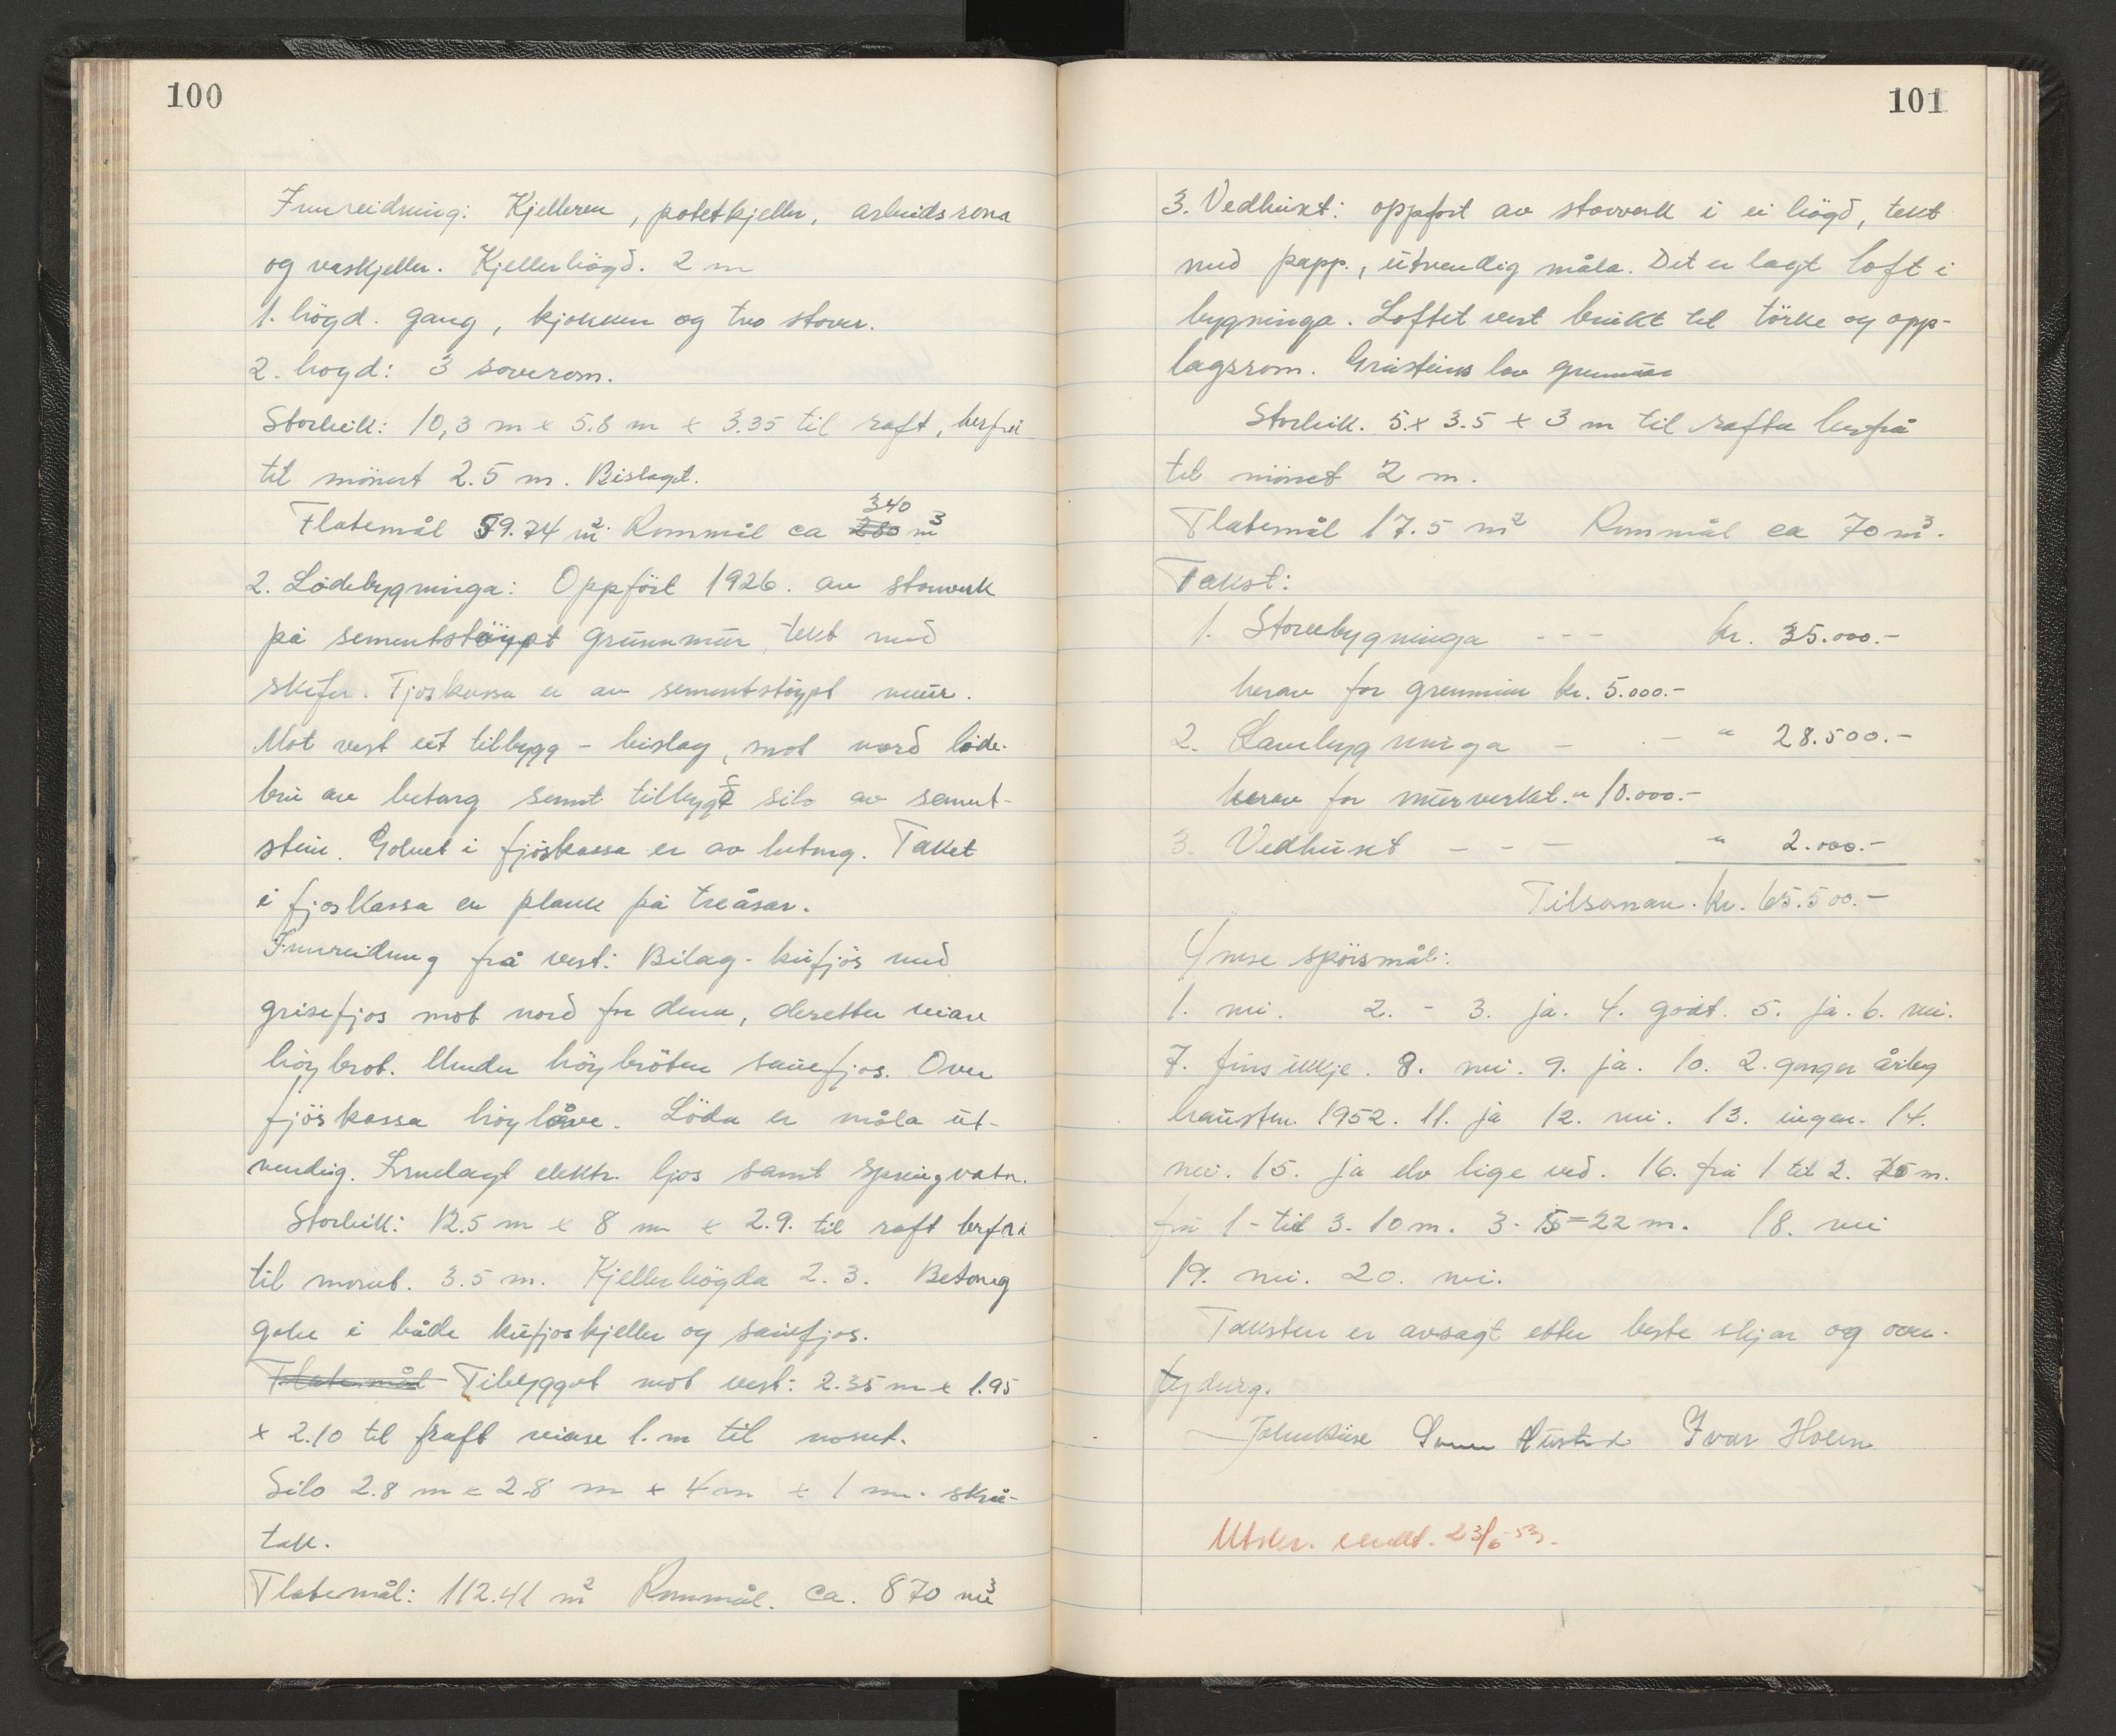 100
Innreidning: Kjelleren, potetkjeller, arbeidsrom
og vaskjeller. Kjellerhögd. 2 m
1. högd. gang, kjøkken og tvo stover.
2. hogd: 3 soverom.
Storleik: 10,3 m x 5.8 m x 3.35 til raft, herfrå
til mönert 2.5 m. Bislaget.
Flatemål 59.74 m². Rommål ca 280 340 m³
2. Lödebygninga: Oppfört 1926. av stovverk
på sementstöypt grunnmur, tekt med
skifer. Fjoskassa er av sementstöypt mur.
Mot vest eit tilbygg - bislag, mot nord löde-
bru av betong samt tilbygd silo av sement-
stein. Golvet i fjöskassa er av betong. Taket
i fjoskassa er plank på treåsar.
Innreidning frå vest: Bilag - kufjös med
grisefjos mot nord for denn, deretter
höybrot. Under höybröten sauefjos. Over
fjöskassa höylåve. Löda er måla ut-
vendig. Innlagt elektr. ljos samt springvatn.
Storleik: 12.5 m x 8 m x 2.9. til raft herfrå
til monet. 3.5 m. Kjellerhögda 2.3. Betong
golv i både kufjoskjeller og sauefjos.
Flatemål Tilbygget mot vest: 2.35 m x 1.95
x 2.10 til raft 1. m til
Silo 2.8 m x 2.8 m x 4 m x 1 m. skrå-
tak.
Flatemål: 112.41 m² Rommål. ca. 870 m³
101
3. Vedhuset: oppfort av stovverk i ei högd, tekt
med papp., utvendig måla. Det er lagt loft i
bygninga. Loftet vert brukt til törke og opp-
lagsrom. Gråsteins lav grunnmur
Storleik. 5 x 3.5 x 3 m til rafta herfrå
til mönet 2 m.
Flatemål 17.5 m² Rommål ca 70 m³.
Takst:
1. Stovebygninga - - - kr. 35.000.-
herav for grunnmur kr. 5.000.-
2. Lauebygninga - . - " 28.500.-
herav for murverket. " 10.000.-
3. Vedhuset - - - " 2.000.-
Tilsaman. kr. 65.500.-
Ymse spörsmål:
1. nei. 2. - 3. ja. 4. godt. 5. ja. 6. nei.
7. fins ikkje. 8. nei. 9. ja. 10. 2. ganger årleg
hausten 1952. 11. ja 12. nei. 13. ingen. 14.
nei. 15. ja elv lige ved. 16. frå 1 til 2. 25 m.
frå 1 - til 3. 10 m. 3 - 5 = 22 m. 18. nei
19. nei. 20. nei.
Taksten er avsagt etter beste skjön og over-
tyding.
Ivar Holen
Utskr. sendt. 23/6-53.